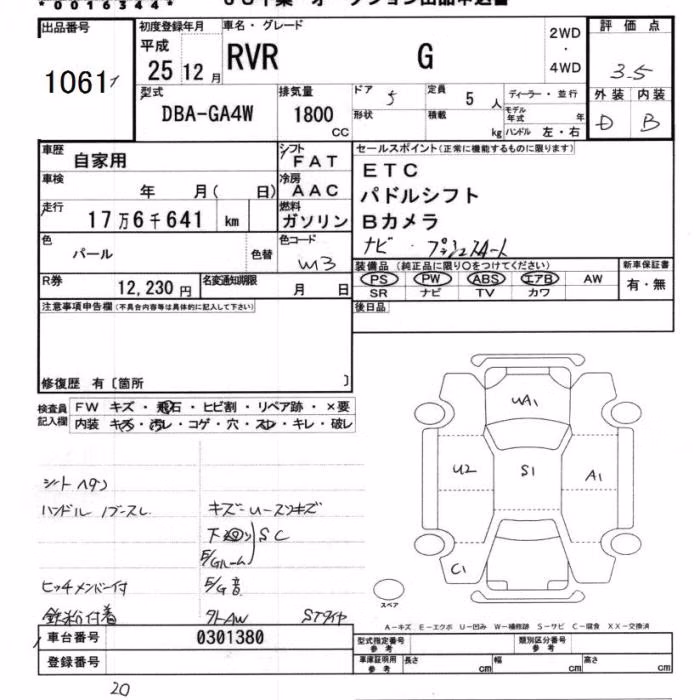 *0016344*
出品番号
1061
初度登録年月
平成
25 12 月
車名・グレード
RVR G
2WD
・
4WD
評価点
3.5
型式
DBA-GA4W
排気量
1800
CC
ドア 5
定員 5 人
ディーラー・並行
形状
積載 kg
モデル年式 年
ハンドル 左・右
外装 内装
D B
車歴
自家用
シフト
FAT
車検
年 月( 日)
冷房
AAC
走行
17万6千641 km
燃料
ガソリン
色
パール
色替
色コード
W13
R券
12,230 円
名変通知期限
月 日
セールスポイント(正常に機能するものに限ります)
ETC
パドルシフト
Bカメラ
ナビ・プッシュスタート
装備品 (純正品に限り○をつけてください)
新車保証書
PS PW ABS エアB AW
有・無
SR ナビ TV カワ
後日品
注意事項申告欄(不具合内容等は具体的に記入して下さい)
修復歴 有〔箇所 〕
検査員
記入欄
FW キズ・飛石・ヒビ割・リペア跡・×要
内装 キズ・汚レ・コゲ・穴・スレ・キレ・破レ
シートヘタリ
ハンドル
下廻り SC
E/Gルーム
ヒッチメンバー付
E/G音
鉄粉付着
外AW STタイヤ
WA1
U2
S1
A1
C1
スペア
A-キズ E-エクボ U-凹み W-補修跡 S-サビ C-腐食 XX-交換済
車台番号
0301380
登録番号
型式指定番号
参考
類別区分番号
参考
車庫証明用
参考
長さ cm
幅 cm
高さ cm
20